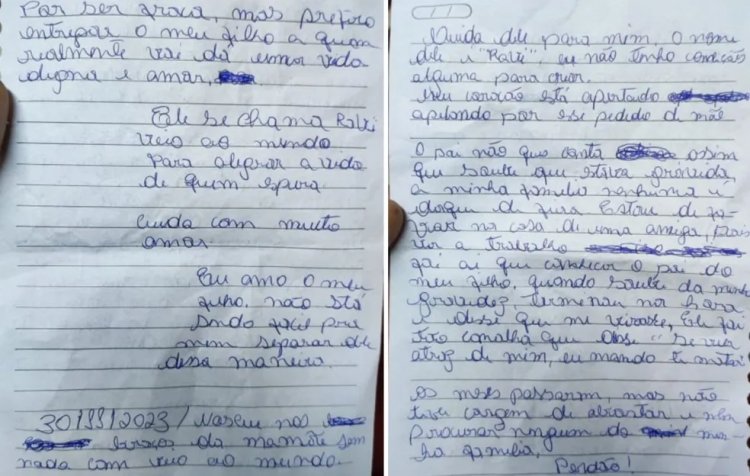 Por ser fraca, mas prefiro
entregar o meu filho a quem
realmente vai dá uma vida
digna e amor.
Ele se chama Ravi
veio ao mundo
para alegrar a vida
de quem espera
cuida com muito
amor.
Eu amo o meu
filho. não está
sendo fácil pra
mim separar dele
dessa maneira.
30/11/2023/ Nasceu nos
braços da mamãe sem
nada com veio ao mundo.
Cuida dele para mim, o nome
dele é "Ravi", eu não tenho condições
alguma para criar.
Meu coração está apertado
apelando por esse pedido de mãe
O pai não quis conta assim
que soube que estava gravida,
a minha familia nenhuma é
daqui de fora. Estou de fa-
vor na casa de uma amiga,
vir a trabalho
foi ai que conhecer o pai do
meu filho, quando soube da minha
gravidez, terminou na hora
e disse que me virasse, Ele foi
tão canalha que disse "se vir
atras de mim, eu mando te matar
os meses passaram, mas não
tive coragem de abortar e nem
procurar ninguem da mi-
ha familia,
Perdão!